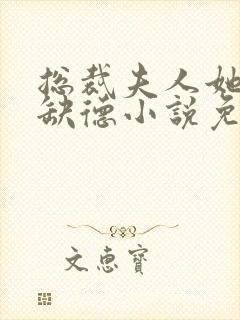 总裁夫人她
缺德小說免
文惠寶